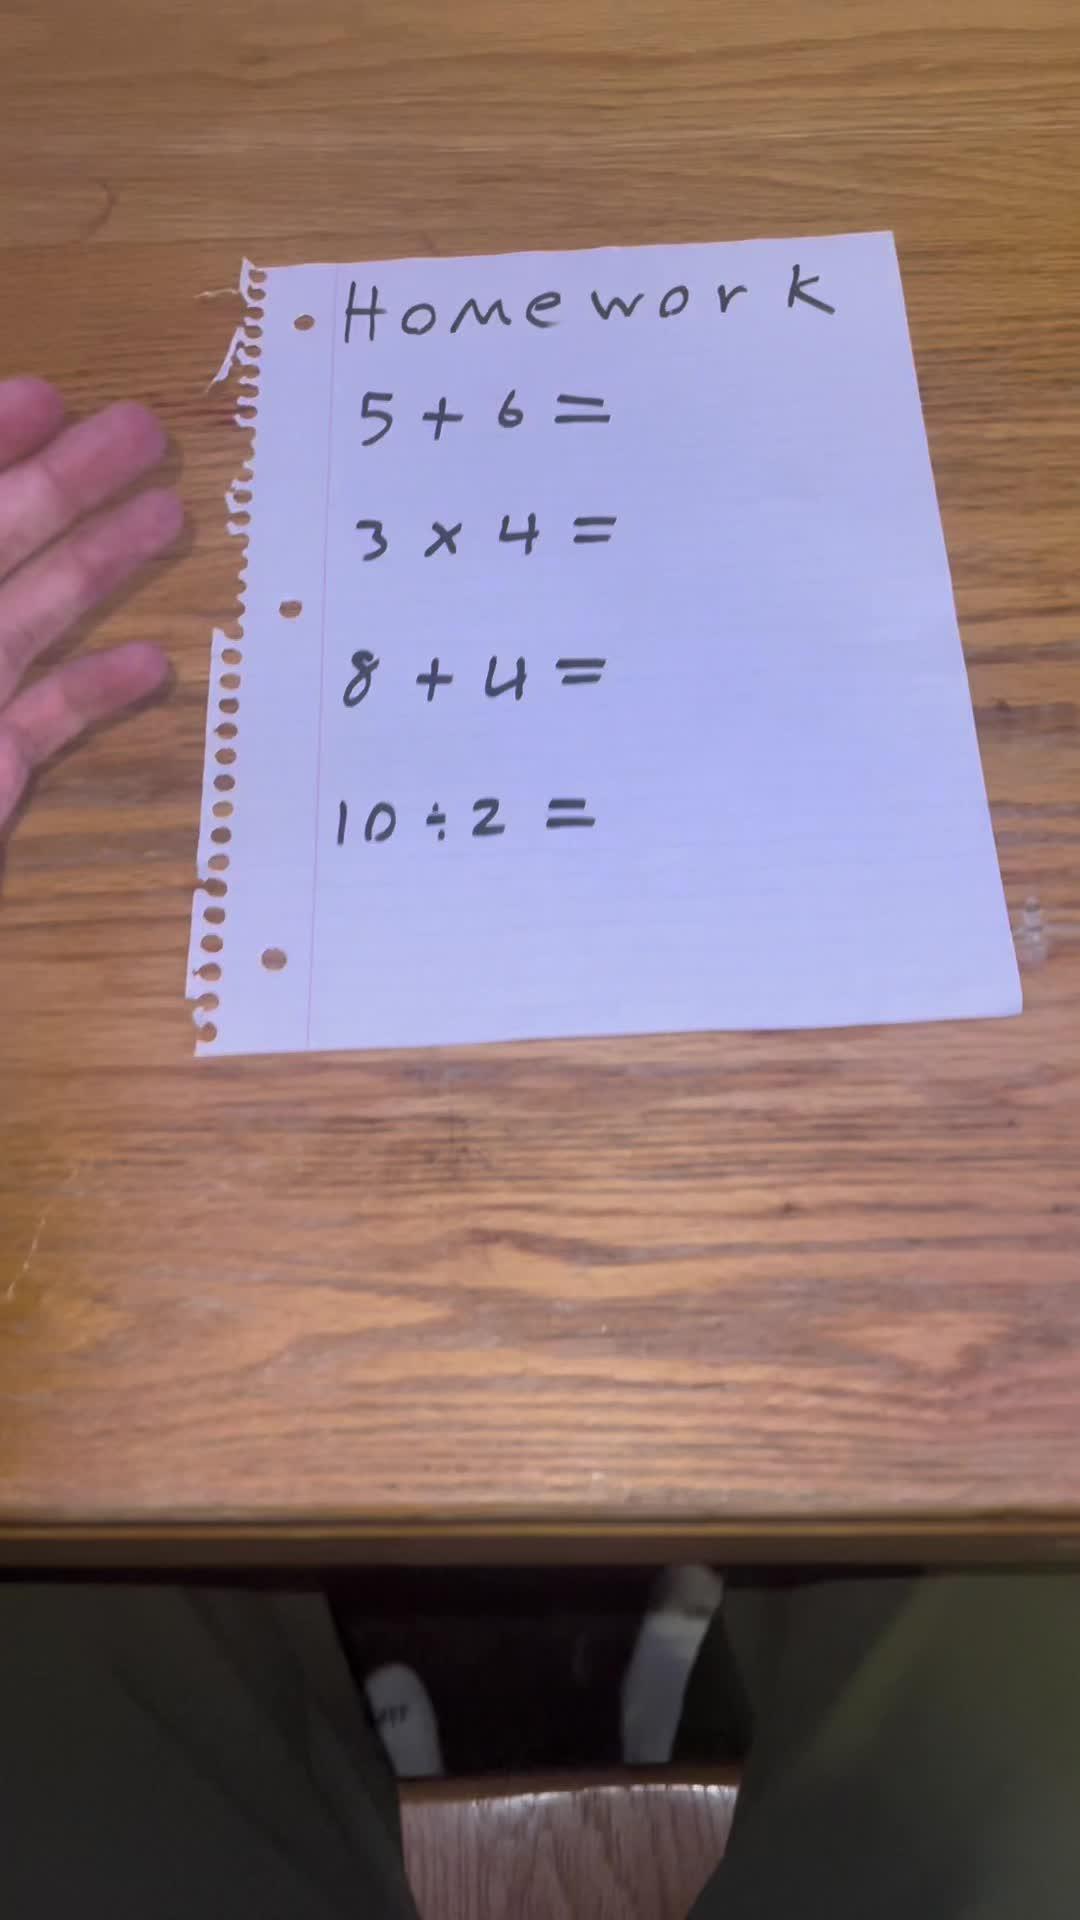 Homework
5 + 6 =
3 x 4 =
8 + 4 =
10 ÷ 2 =